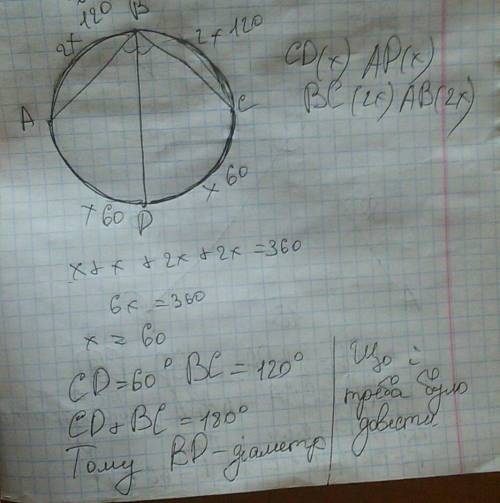 B
120
2x
2x 120
CD(x) AD(x)
BC(2x) AB(2x)
A
C
x 60
x 60
D
x + x + 2x + 2x = 360
6x = 360
x = 60
CD = 60° BC = 120°
CD + BC = 180°
Тому BD - діаметр
Що і
треба було
довести